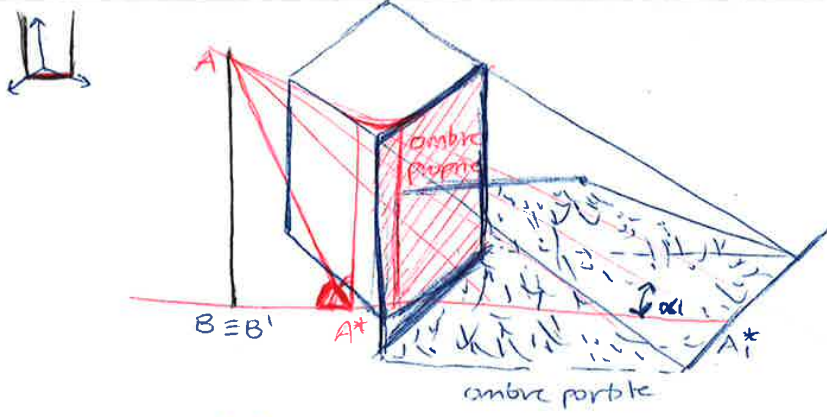 A
ombre
propre
B ≡ B'
A*
α1
A₁*
ombre portée